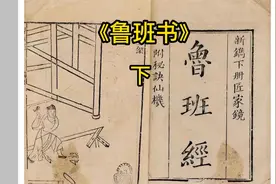 《鲁班书》
下
新鐫下册匠家鏡
魯班經
附秘訣仙機